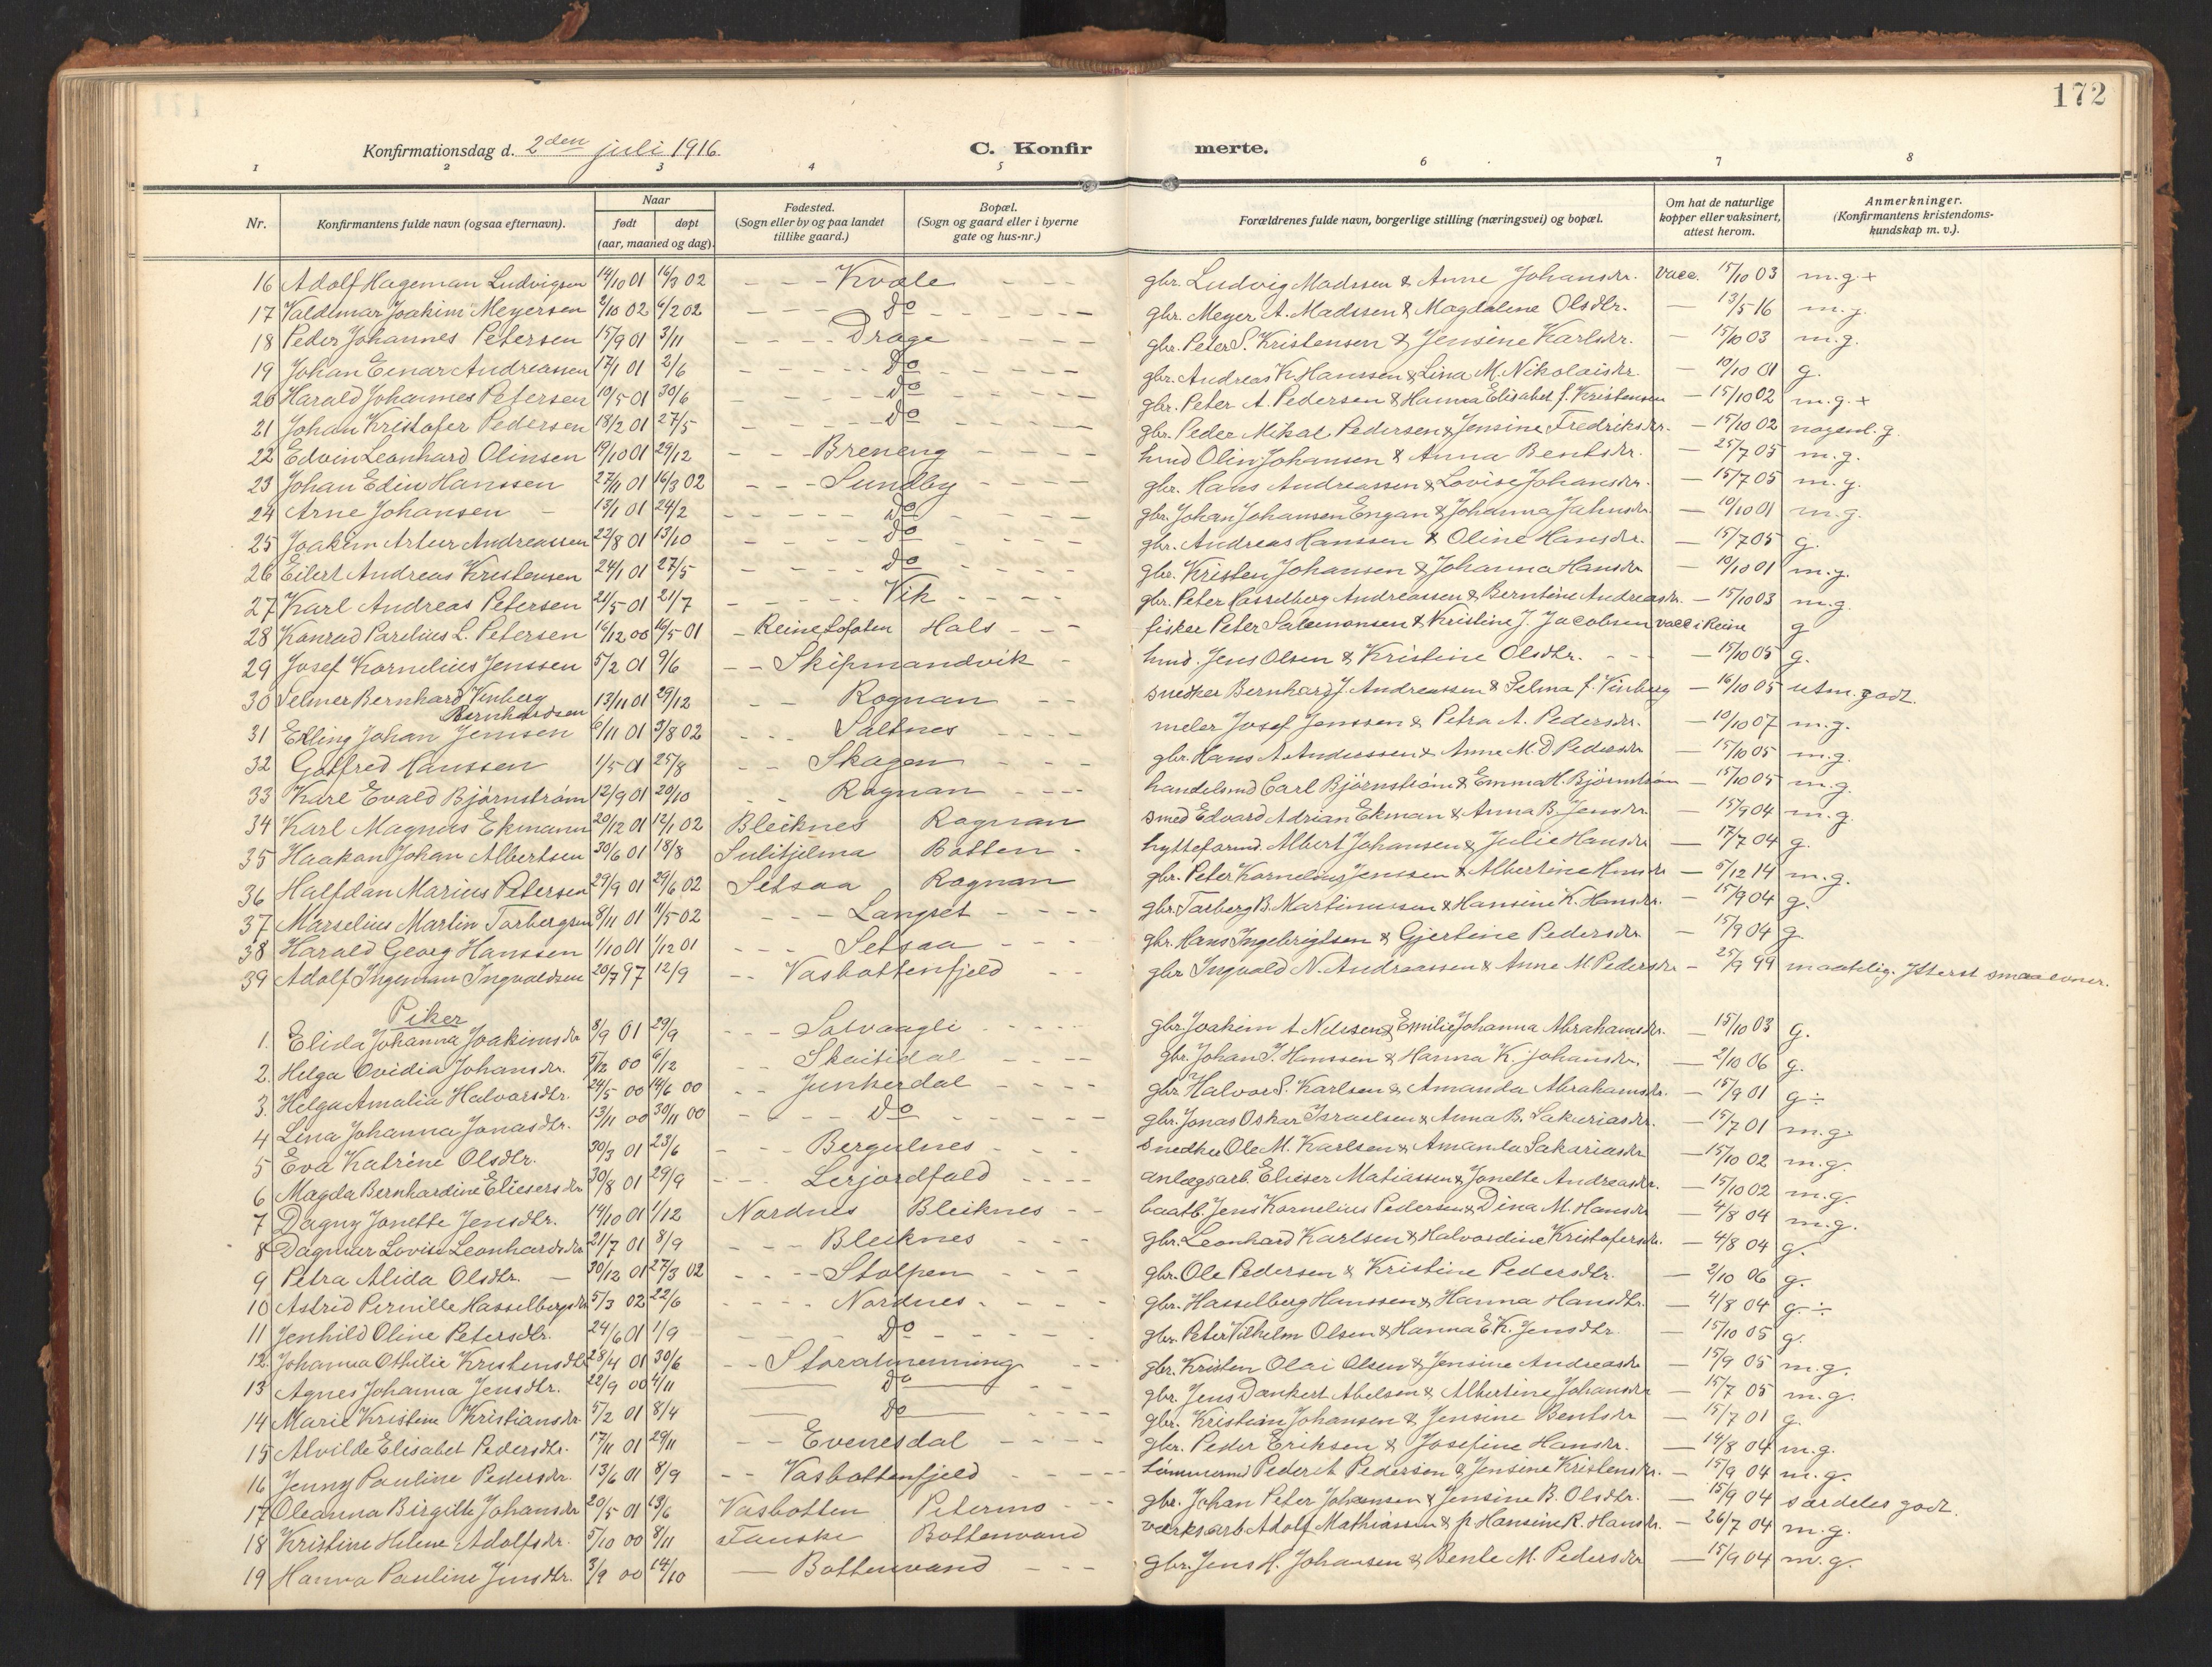 172
Konfirmationsdag d. 2den juli 1916.
C. Konfirmerte.
1 2 3 4 5 6 7 8
Nr. Konfirmantens fulde navn (ogsaa efternavn). Naar født døpt (aar, maaned og dag). Fødested. (Sogn eller by og paa landet tillike gaard.) Bopæl. (Sogn og gaard eller i byerne gate og hus-nr.) Forældrenes fulde navn, borgerlige stilling (næringsvei) og bopæl. Om hat de naturlige kopper eller vaksinert, attest herom. Anmerkninger. (Konfirmantens kristendomskundskap m. v.).
16 Adolf Hageman Ludvigsen 14/10 01 16/3 02 - - - Kvæle - - - gbr. Ludvig Madssen & Anne Johansdr. Vacc. 15/10 03 m.g.+
17 Valdemar Joakim Meyersen 2/10 02 6/2 02 - - - Do - - - gbr. Meyer A. Madssen & Magdalene Olsdtr. — 13/5 16 m.g.
18 Peder Johannes Petersen 15/9 01 3/11 - - - Drage - - - gbr. Peter S. Kristensen & Jensine Karlsdr. — 15/10 03 m.g.
19 Johan Einar Andreassen 17/1 01 2/6 - - - Do - - - gbr. Andreas K. Hanssen & Lina M. Nikolaisdr. — 10/10 01 g.
20 Harald Johannes Petersen 19/5 01 30/6 - - - Do - - - gbr. Peter A. Pedersen & Hanna Elisabet f. Kristensen — 15/10 02 m.g.+
21 Johan Kristofer Pedersen 18/2 01 27/5 - - - Do - - - gbr. Peder Mikal Pedersen & Jensine Fredriksdr. — 15/10 02 nogenl. g.
22 Edvin Leonhard Olinsen 19/10 01 29/12 - - - Breneng - - - hmd Olin Johansen & Anna Bentsdr. — 25/7 05 m.g.
23 Johan Edin Hanssen 27/11 01 16/3 02 - - - Sundby - - - gbr. Hans Andreassen & Lovise Johansdr. — 15/7 05 m.g.
24 Arne Johansen - 13/1 01 24/2 - - - Do - - - gbr. Johan Johansen Engan & Johanna Jahnsdr. — 10/10 01 m.g.
25 Joakim Artur Andreassen 22/8 01 13/10 - - - Do - - - gbr. Andreas Hanssen & Oline Hansdr. — 15/7 05 g.
26 Eilert Andreas Kristensen 24/1 01 27/5 - - - Do - - - gbr. Kristen Johansen & Johanna Hansdr — 10/10 01 m.g.
27 Karl Andreas Petersen 21/5 01 21/7 - - - Vik - - - gbr. Peter Hasselberg Andreassen & Berntine Andreasdr. — 15/10 03 m.g.
28 Konrad Parelius L. Petersen 16/12 00 16/5 01 - Reine Lofoten Hals - - - fisker Peter Salomonsen & Kristine J. Jacobsen vacc i Reine g
29 Josef Kornelius Jenssen 5/2 01 9/6 - - Skipmandvik - hmd. Jens Olsen & Kristine Olsdtr. - - - 15/10 05 g.
30 Selmer Bernhard Vinberg Bernhardsen 13/11 01 29/12 - - Rognan - - - snedker Bernhard J. Andreassen & Selma f. Vinberg — 16/10 05 utm. godt.
31 Erling Johan Jenssen 6/11 01 3/8 02 - - - Saltnes - - - meler Josef Jenssen & Petra A. Pedersdr. — 10/10 07 m.g.
32 Gotfred Hanssen 1/5 01 25/8 - - Skagen - - - gbr. Hans A. Anderssen & Anne M. D. Pedersdr — 15/10 05 m.g.
33 Karl Evald Bjørnstrøm 12/9 01 20/10 - - Rognan - - - handelsmd Carl Bjørnstrøm & Emma H. Bjørnstrøm — 15/10 05 m.g.
34 Karl Magnus Ekmann 20/12 01 12/1 02 Bleiknes Rognan smed Edvard Adrian Ekman & Anna B. Jensdr — 15/9 04 m.g.
35 Haakon Johan Albertsen 30/6 01 18/8 Sulitjelma Botten - hytteformd. Albert Johansen & Julie Hansdr — 17/7 04 g.
36 Halfdan Marius Petersen 29/9 01 29/6 02 Setsaa Rognan gbr. Peter Kornelius Jenssen & Albertine Hansdr — 5/12 14 m.g.
37 Marselius Martin Torbergsen 8/11 01 11/5 02 - - - Langset - - - gbr. Torberg B. Martinussen & Hansine K. Hansdr. — 15/9 04 g.
38 Harald Georg Hanssen 1/10 01 1/12 01 - - - Setsaa - - - gbr. Hans Ingebrigtsen & Gjertine Pedersdr — 15/9 04 g.
39 Adolf Ingeman Ingvaldsen 20/7 97 12/9 - - Vasbottenfjeld - - gbr Ingvald N. Andreassen & Anne M. Pedersdr — 25/9 99 maatelig. Ytterst smaa evner.
Piker
1. Elida Johanna Joakimsdr 8/9 01 29/9 - - - Solvaagli - - - gbr. Joakim A. Nilssen & Emilie Johanna Abrahamsdr. — 15/10 03 g.
2. Helga Ovidia Johansdr. 5/12 00 6/12 - - Skaitidal - - - gbr. Johan J. Hanssen & Hanna K. Johansdr. — 2/10 06 g.
3. Helga Amalia Halvorsdtr. 24/5 00 14/6 00 - - Junkerdal - - - gbr Halvor S. Karlsen & Amanda Abrahamsdr. — 15/9 01 g÷
4 Lina Johanna Jonasdtr. 13/11 00 30/11 00 - - - Do - - - gbr. Jonas Oskar Israelsen & Anna B. Sakariasdr. — 15/7 01 m.g.
5 Eva Katrine Olsdtr. 30/3 01 23/6 - - - Bergulnes - - - snedker Ole M. Karlsen & Amanda Sakariasdr — 15/10 02 m.g.
6 Magda Bernhardine Eliesersdr 30/8 01 29/9 - - - Lerjordfald - - - anlægsarb. Elieser Matiassen & Jonette Andreasdr. — 15/10 02 m.g.
7 Dagny Jonette Jensdtr. 14/10 01 1/12 Nordnes Bleiknes - - baatb. Jens Kornelius Pedersen & Dina M. Hansdr — 4/8 04 m.g.
8 Dagmar Lovise Leonhardsdr 21/7 01 8/9 - - - Bleiknes - - - gbr. Leonhard Karlsen & Halvordine Kristofersdr. — 4/8 04 g.
9 Petra Alida Olsdtr. — 30/12 01 27/3 02 - - - Stolpen - - - gbr. Ole Pedersen & Kristine Pedersdtr. — 2/10 06 g.
10 Astrid Pernille Hasselbergsdr 5/3 02 22/6 - - - Nordnes - - - gbr. Hasselberg Hanssen & Hanna Hansdtr. — 4/8 04 g.÷
11 Jenhild Oline Petersdtr. 24/6 01 1/9 - - Do - - - gbr. Peter Vilhelm Olsen & Hanna E. K. Jensdtr. — 15/10 05 g.
12. Johanna Othilie Kristensdtr 28/4 01 30/6 - - Storalmenning - - gbr. Kristen Olai Olsen & Jensine Andreasdr — 15/9 05 m.g.
13 Agnes Johanna Jensdtr. 22/9 00 4/11 — Do — - - gbr. Jens Dankert Abelsen & Albertine Johansdr — 15/7 05 m.g.
14 Marie Kristine Kristiansdr 5/2 01 8/4 — Do — gbr. Kristian Johansen & Jensine Bentsdr — 15/7 01 g.
15 Alvilde Elisabet Pedersdtr. 17/11 01 29/11 - - Evenesdal - - - gbr. Peder Eriksen & Josefine Hansdr. — 14/8 04 m.g.
16 Jenny Pauline Pedersdr. 13/6 01 8/9 - - Vasbottenfjeld - - - tømmermd Peder A. Pedersen & Jensine Kristensdr. — 15/9 04 m.g.
17 Oleanna Birgitte Johansdr 20/5 01 23/6 Vasbotten Petermo - - gbr. Johan Peter Johansen & Jensine B. Olsdtr. — 15/9 04 særdeles godt.
18 Kristine Helene Adolfsdr. 5/10 00 8/11 Fauske Bottenvand verksarb Adolf Mathiassen & Hansine R. Hansdr. — 26/7 04 m.g.
19 Hanna Pauline Jensdtr. 3/9 00 14/10 — Bottenvand - - - gbr. Jens H. Johansen & Bente M. Pedersdr — 15/9 04 m.g.